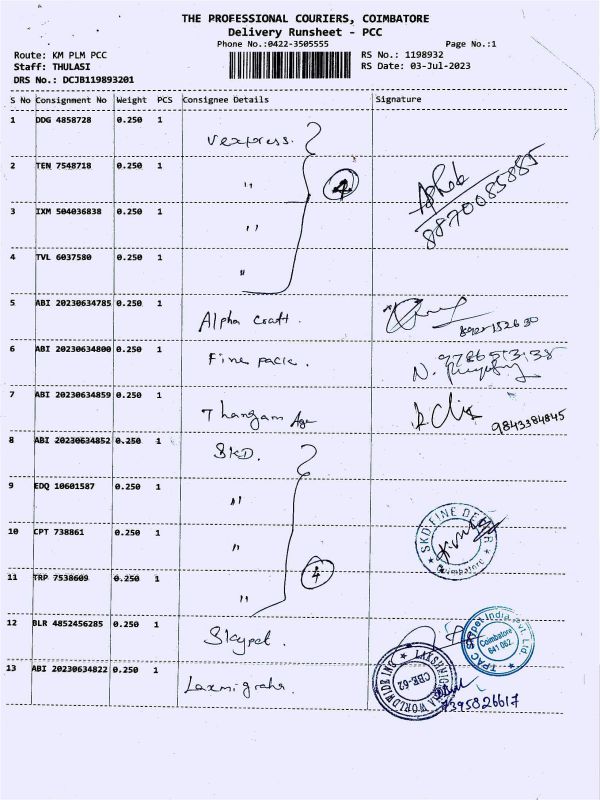 THE PROFESSIONAL COURIERS, COIMBATORE
Delivery Runsheet - PCC
Phone No.:0422-3505555
Page No.:1
Route: KM PLM PCC
RS No.: 1198932
Staff: THULASI
RS Date: 03-Jul-2023
DRS No.: DCJB119893201
S No Consignment No Weight PCS Consignee Details Signature
1 DDG 4858728 0.250 1 Vexpress.
2 TEN 7548718 0.250 1 "
4
8870085885
3 IXM 504036838 0.250 1 "
4 TVL 6037580 0.250 1 "
5 ABI 20230634785 0.250 1 Alpha Craft.
6 ABI 20230634800 0.250 1 Fine pack.
7 ABI 20230634859 0.250 1 Thangam Age
9843384845
8 ABI 20230634852 0.250 1 SKD.
9 EDQ 10601587 0.250 1 "
10 CPT 738861 0.250 1 "
SKD FINE DECOR
Coimbatore
11 TRP 7538609 0.250 1 "
4
12 BLR 4852456285 0.250 1 Skypet.
TPAC Skypet India Pvt. Ltd.
Coimbatore
641 062.
13 ABI 20230634822 0.250 1 Laxmigraha.
WORLDWIDE INC
CBE-62
7395826617